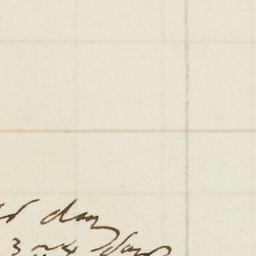 day
3 ~ 4 days